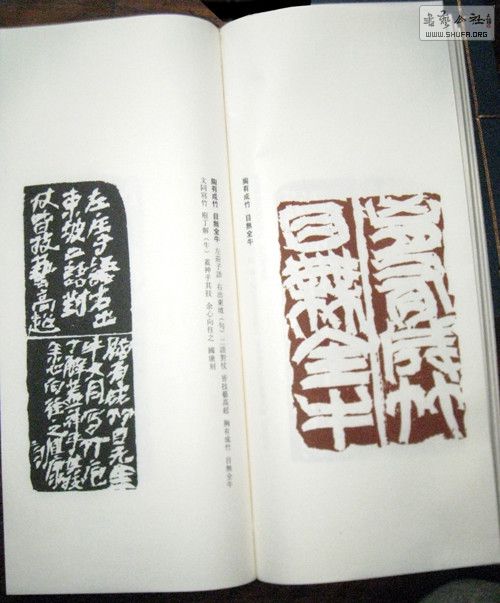 書藝公社
WWW.SHUFA.ORG
胸有成竹
目無全牛
胸有成竹 目無全牛
胸有成竹 目無全牛 左莊子語 右出東坡(句)二語對仗 皆技藝高超 胸有成竹 目無全牛
文同寫竹 庖丁解(牛)蓋神乎其技 余心向往之
左莊子語右出
東坡二語對
仗皆技藝高超
胸有成竹目無全
牛文同寫竹庖
丁解蓋神乎其技
余心向往之